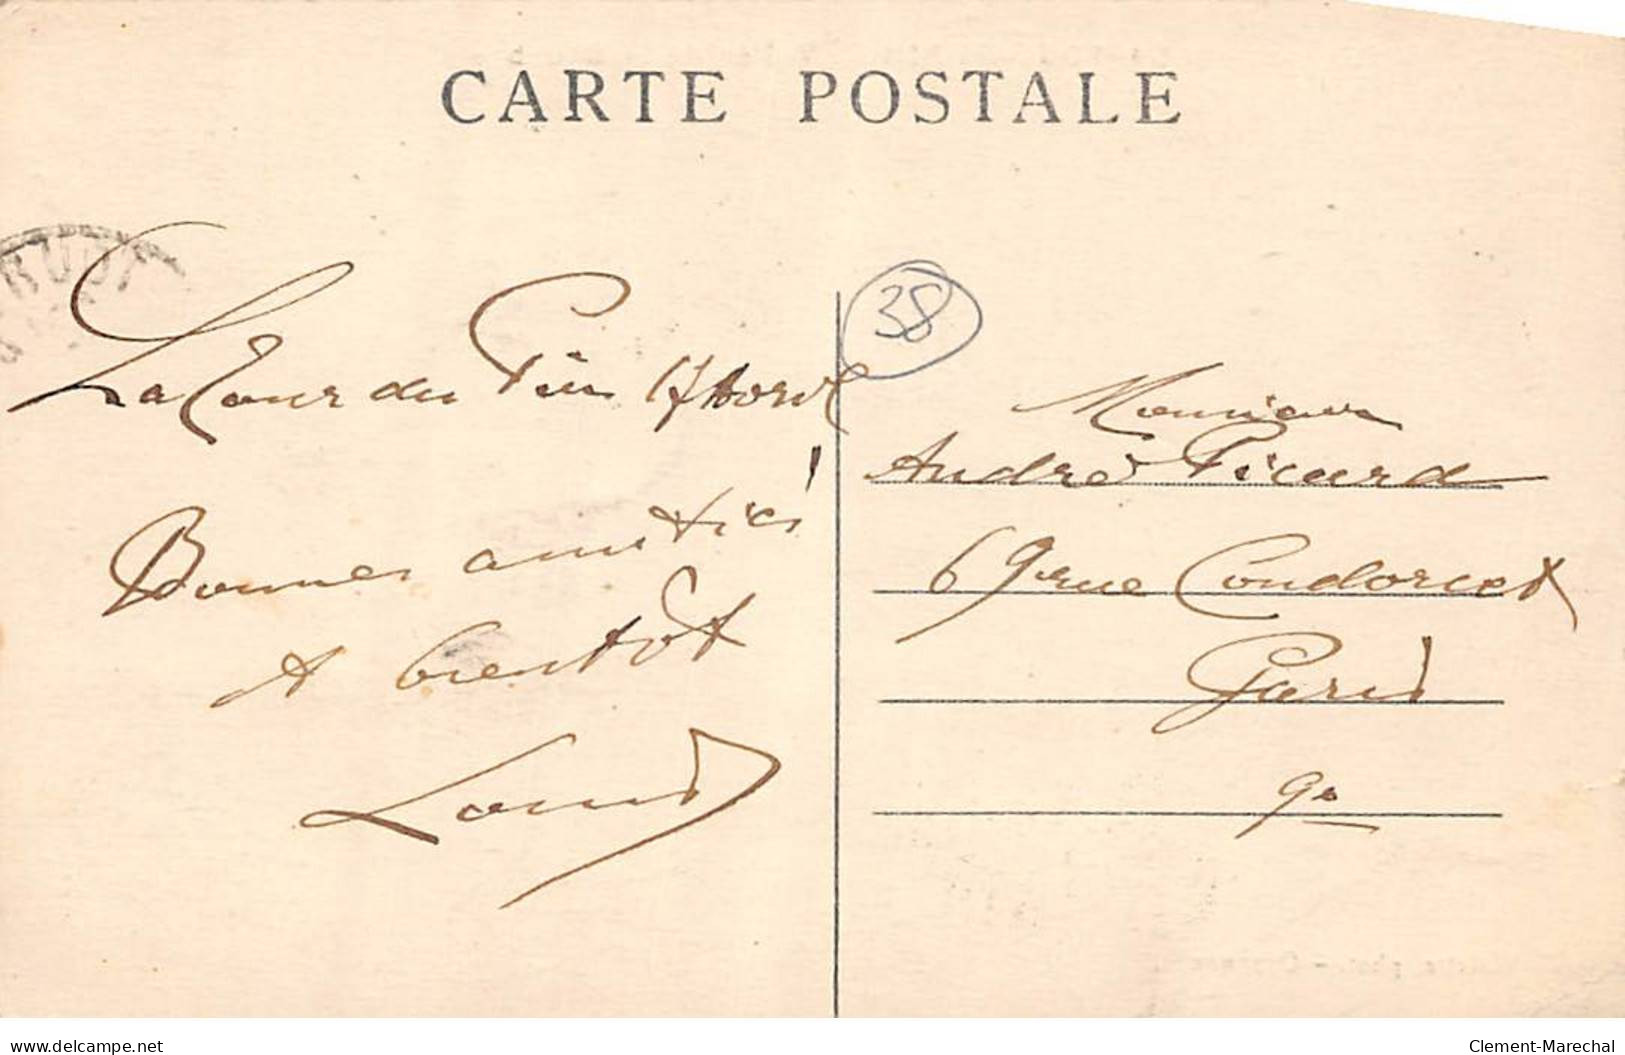 CARTE POSTALE
La Tour du Pin 17 Avril
Bonnes amitiés
A bientôt
Louis
38
Monsieur
André Picard
69 rue Condorcet
Paris
9e
www.delcampe.net
Clement-Marechal